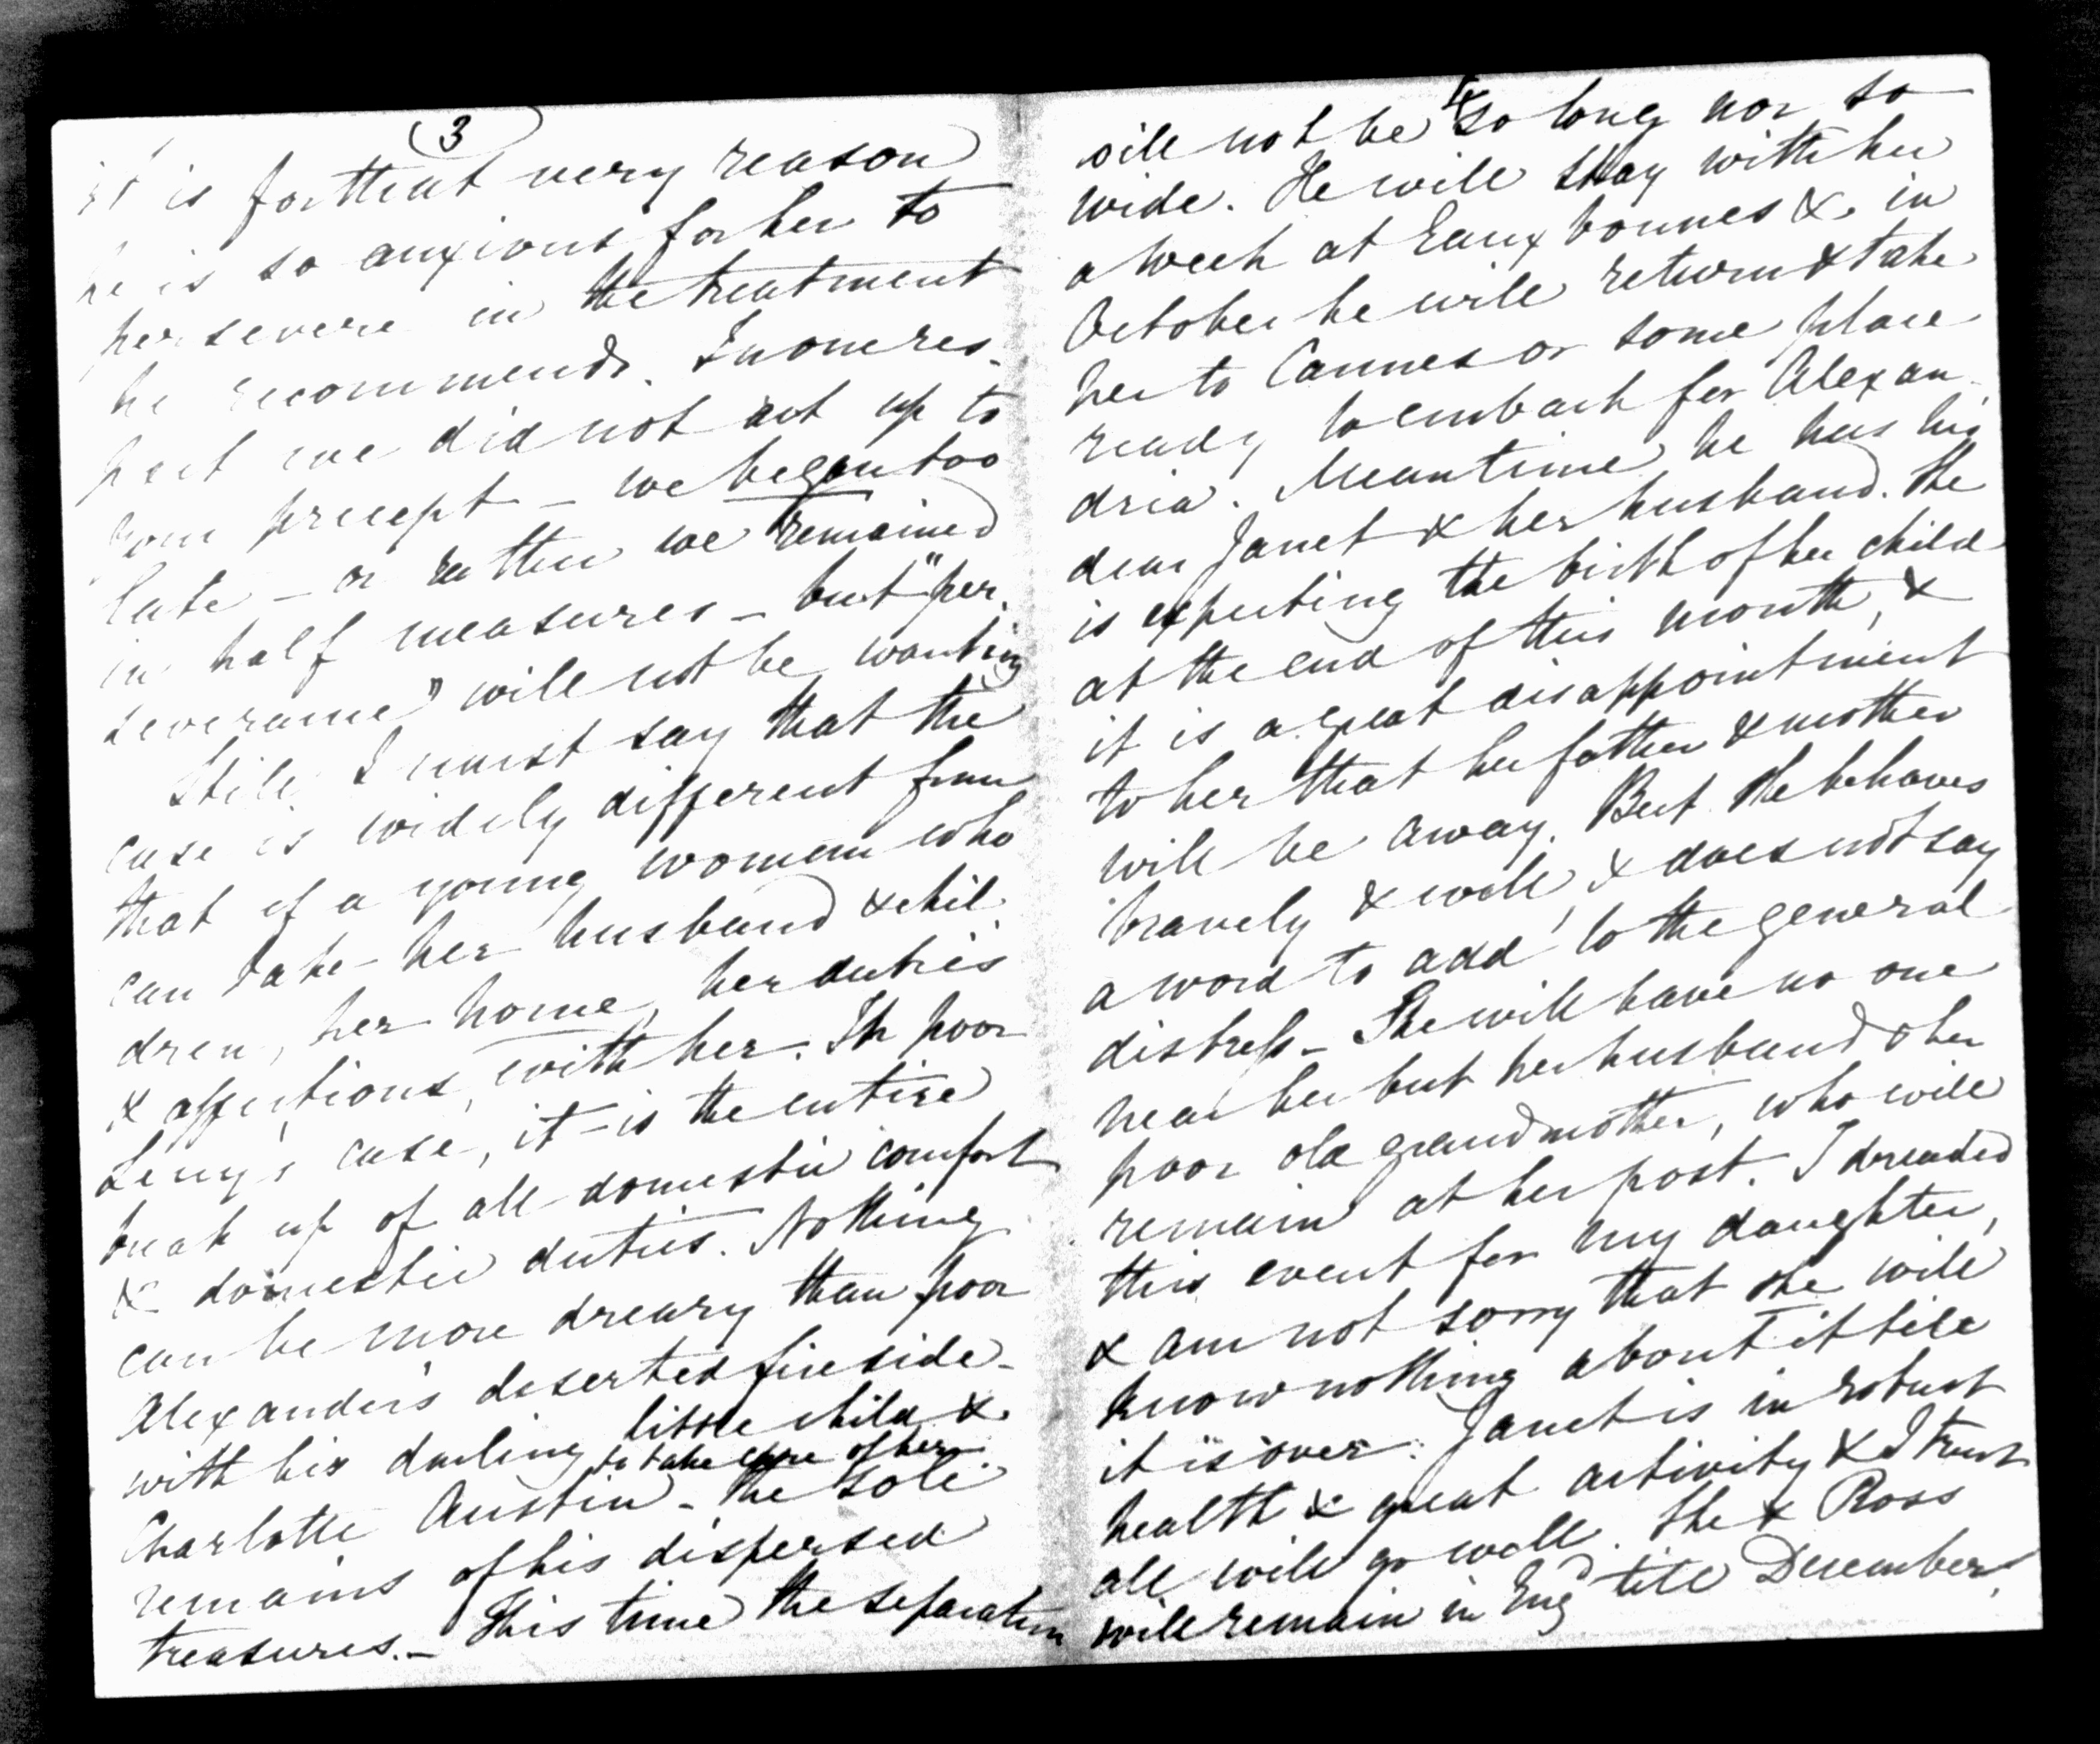 (3)
it is for that very reason
he is so anxious for her to
persevere in the treatment
he recommends. In one res-
pect we did not act up to
your precept – we began too
late – or rather we remained
in half measures – but "per-
severance" will not be wanting
Still I must say that the
case is widely different from
that of a young woman who
can take her husband & chil-
dren, her home, her duties
& affections, with her. In poor
Lucy's case, it is the entire
break up of all domestic comfort
& domestic duties. Nothing
can be more dreary than poor
Alexander's deserted fireside –
with his darling little child &
to take care of her
Charlotte Austin – the sole
remains of his dispersed
treasures. – This time the separation
will not be so long nor so
wide. He will stay with her
a week at Eaux bonnes & in
October he will return & take
her to Cannes or some place
ready to embark for Alexan-
dria. Meantime he has his
dear Janet & her husband. She
is expecting the birth of her child
at the end of this month, &
it is a great disappointment
to her that her father & mother
will be away. But she behaves
bravely & well, & does not say
a word to add to the general
distress – She will have no one
near her but her husband & her
poor old grandmother, who will
remain at her post. I dreaded
this event for my daughter,
& am not sorry that she will
know nothing about it till
it is over. Janet is in robust
health & great activity & I trust
all will go well. She & Ross
will remain in Engd till December.